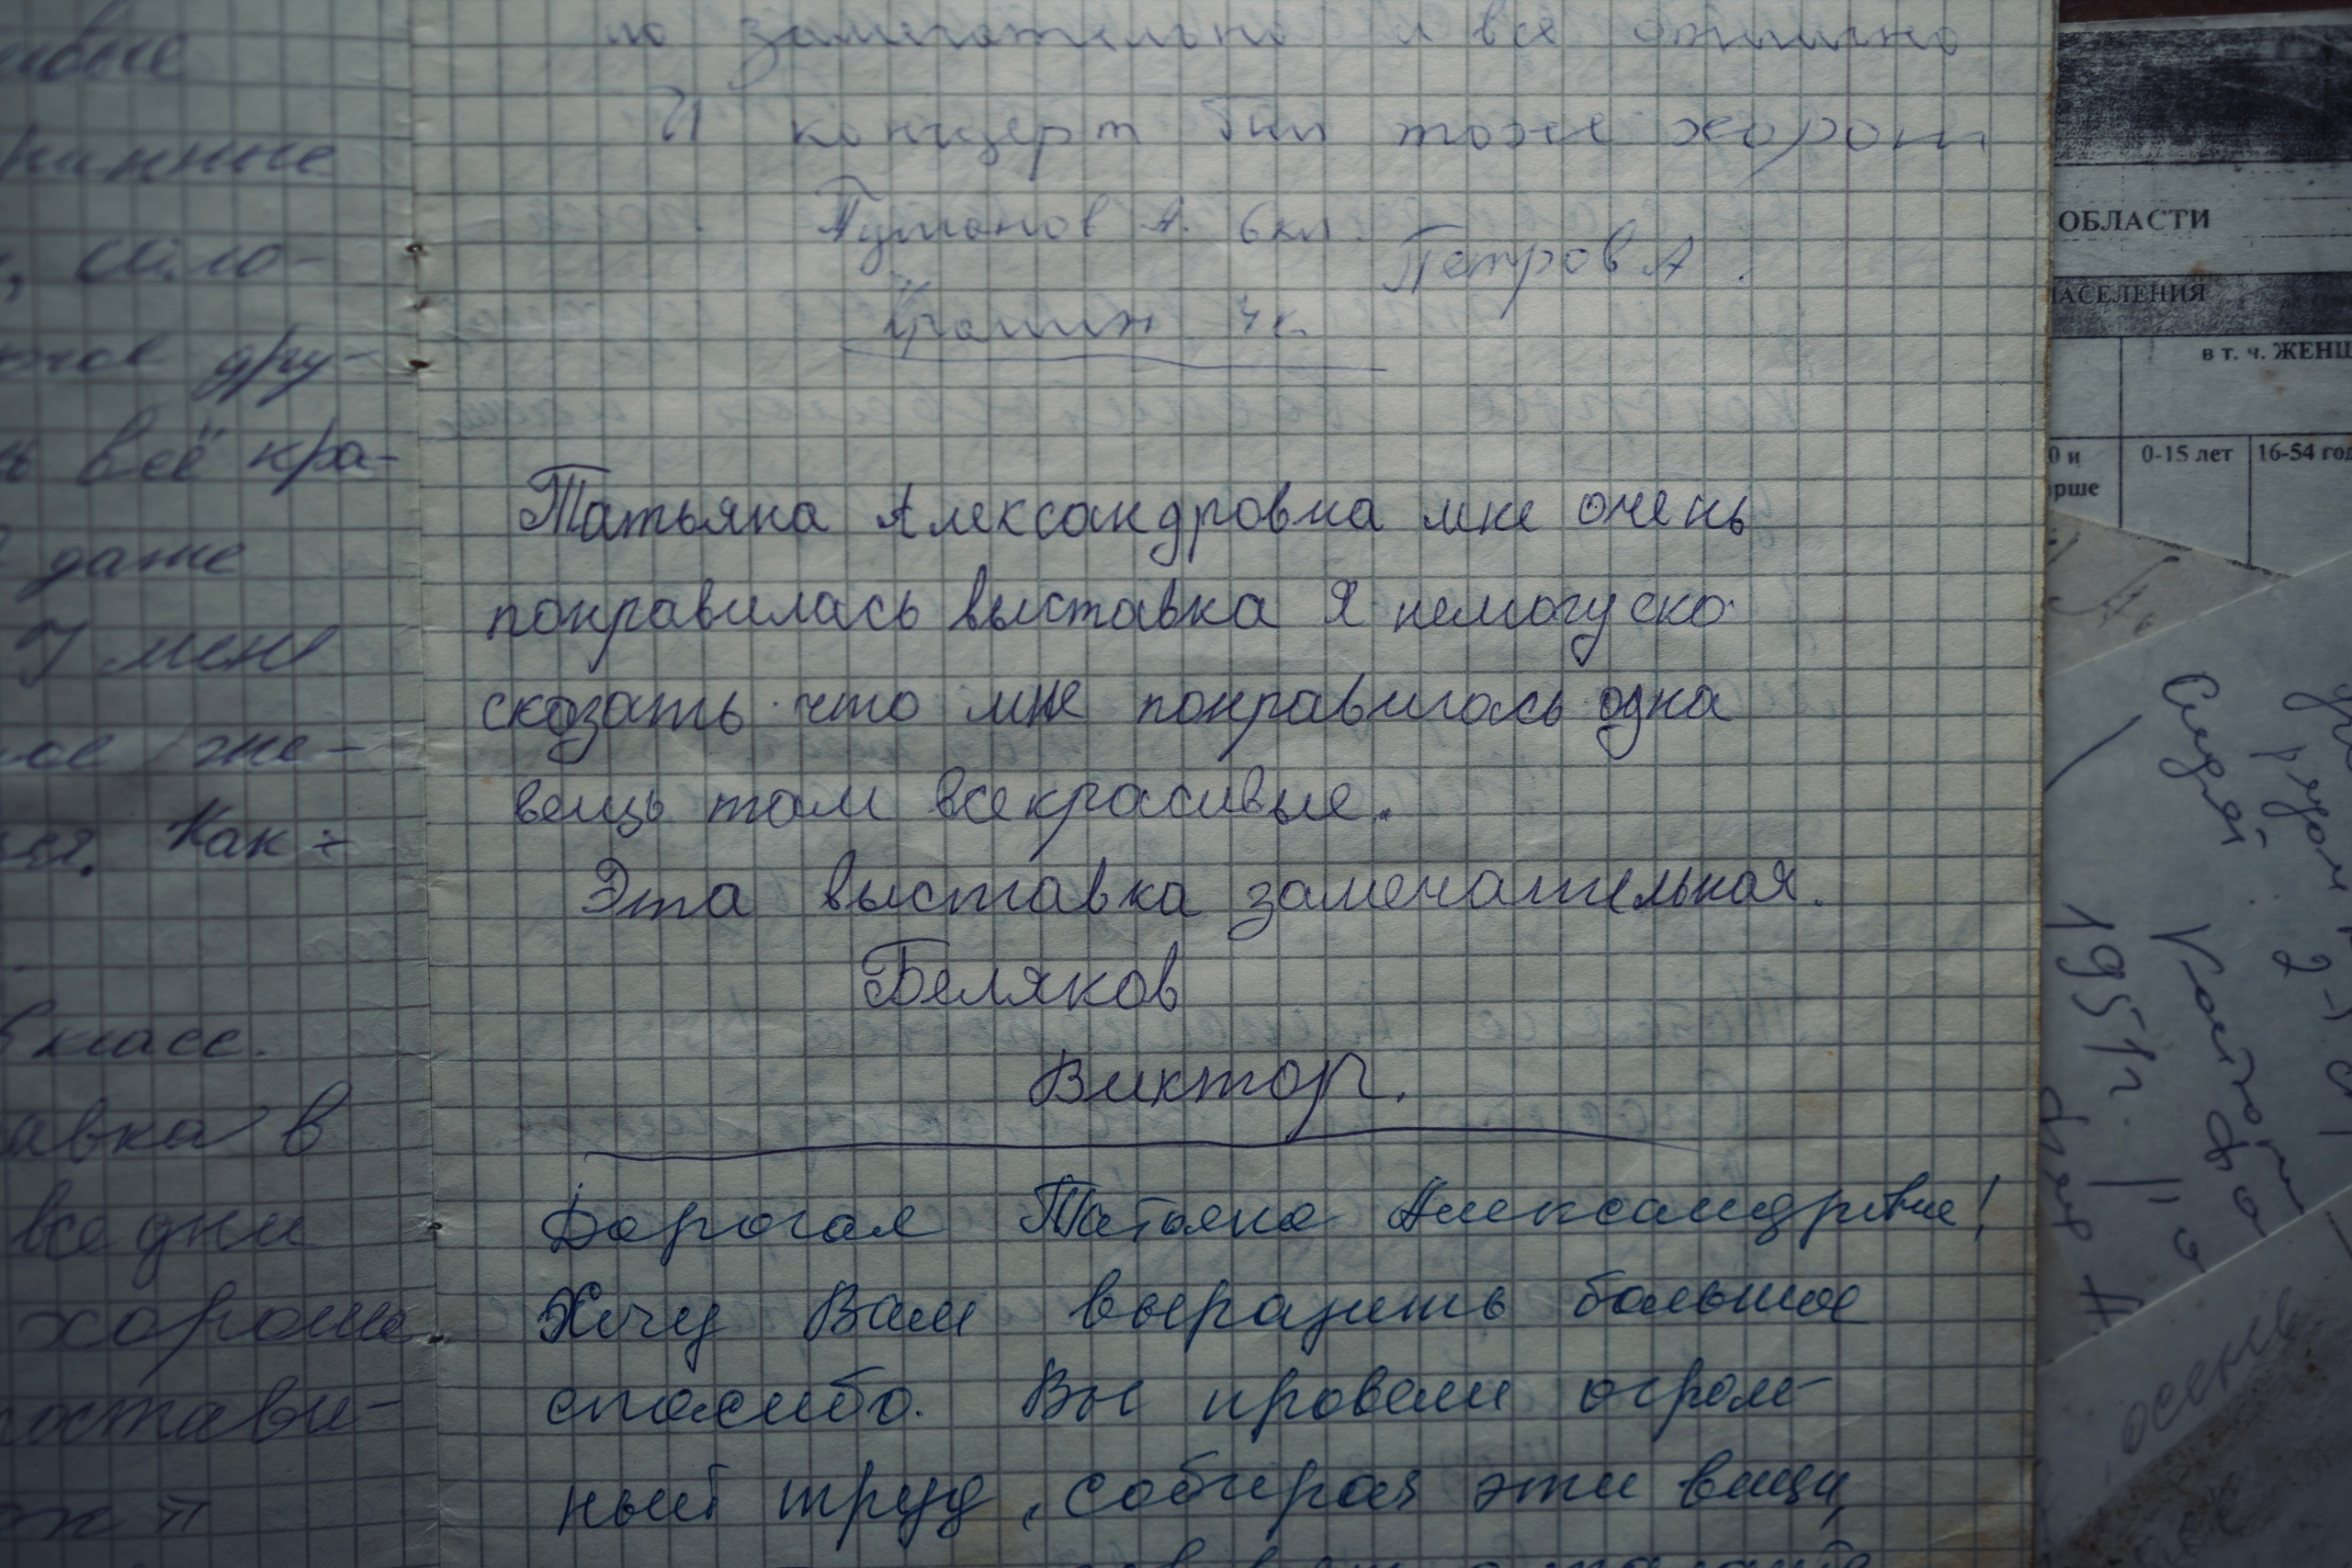 но замечательно и все отлично
И концерт был тоже хорош
Путонов А. 6 кл. Петров А.
4 к.
Татьяна Александровна мне очень
понравилась выставка Я немогу ско
сказать что мне понравилось одна
вещь там все красивые.
Эта выставка замечательная.
Беляков
Виктор.
Дорогая Татьяна Александровна!
Хочу Вам выразить большое
спасибо. Вы провели огром-
ный труд, собирая эти вещи,
дру-
всё кра-
даже
У меня
же-
Как-
класс.
авка в
все дни
хороше
постави-
ОБЛАСТИ
НАСЕЛЕНИЯ
в т. ч. ЖЕНЩ
0 и
рше
0-15 лет
16-54 год
Сидят
1951 г.
осень